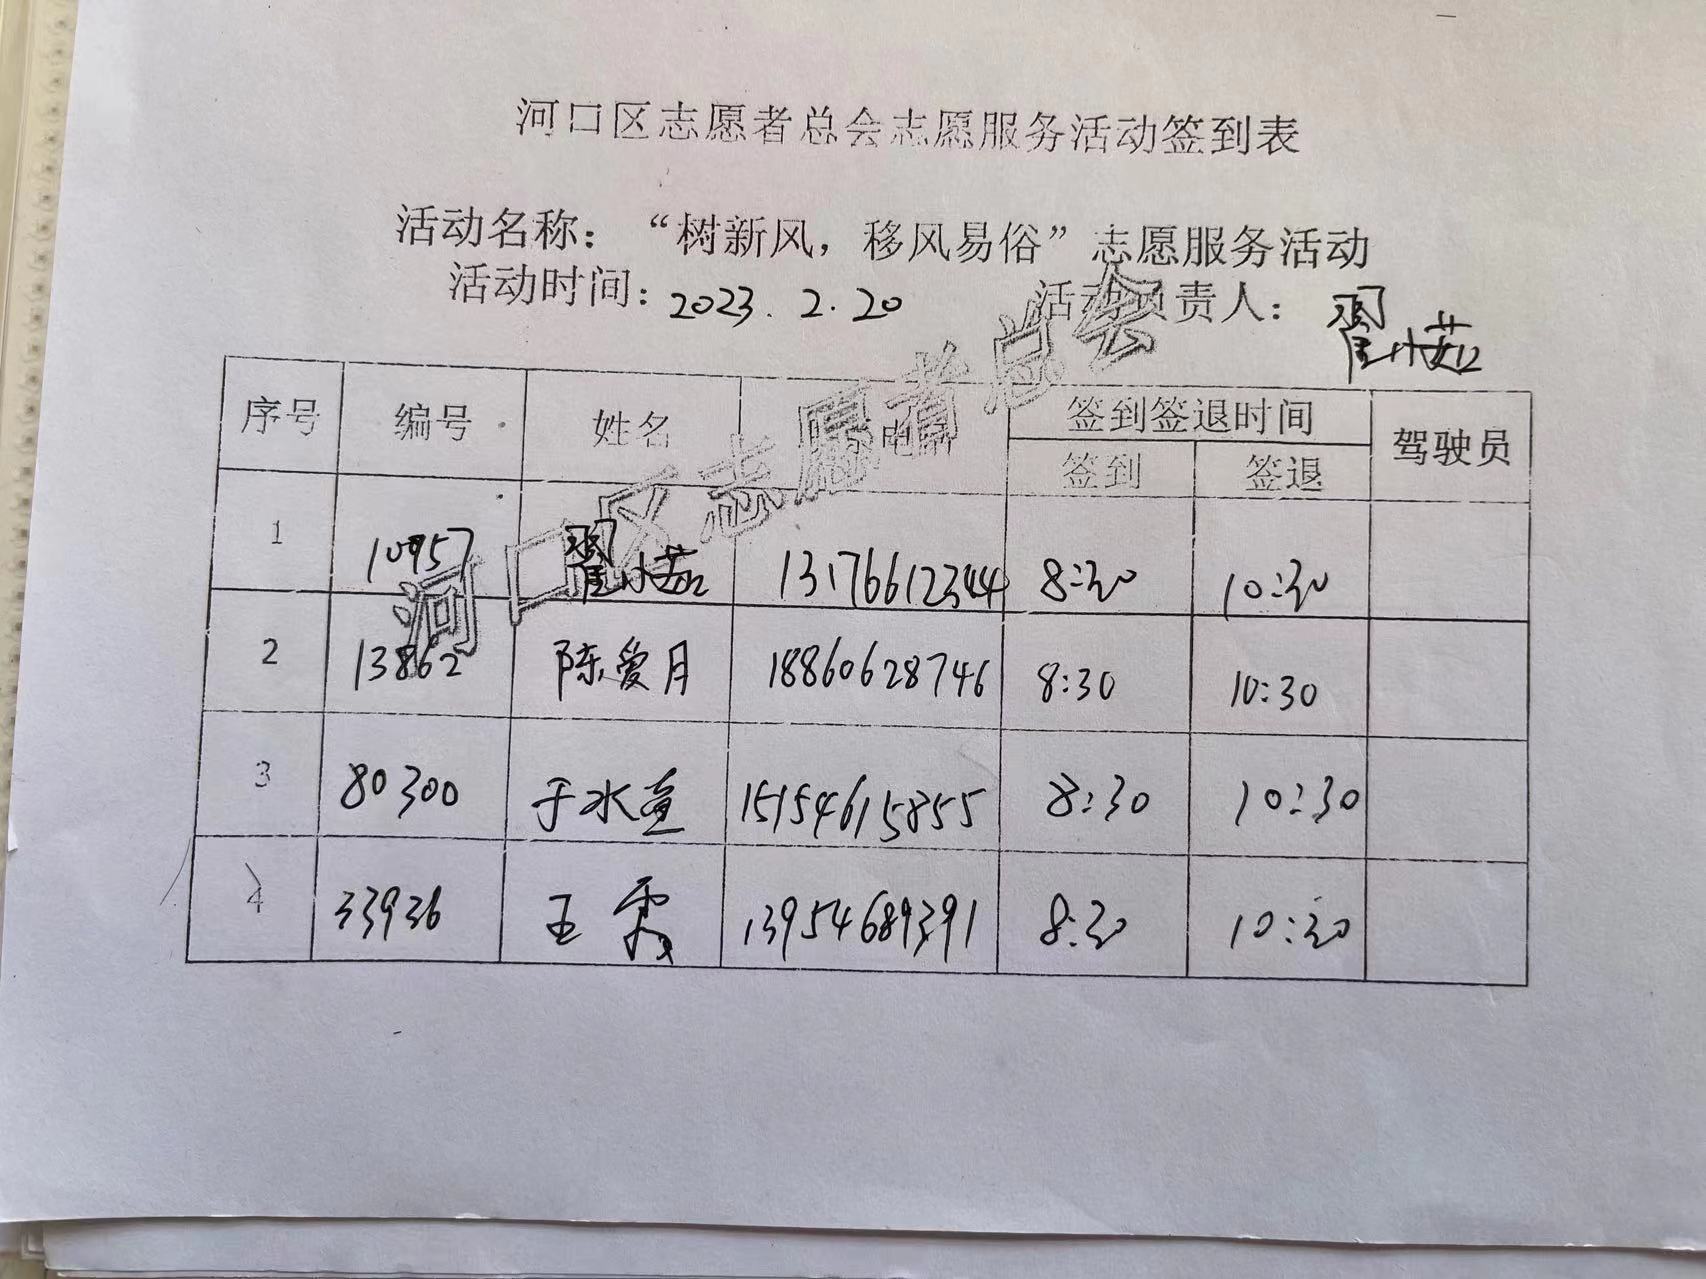 河口区志愿者总会志愿服务活动签到表
活动名称：“树新风，移风易俗”志愿服务活动
活动时间：2023.2.20 活动负责人：翟小茹
序号 编号 姓名 电话 签到签退时间 驾驶员
签到 签退
1 10957 翟小茹 13176612344 8:30 10:30
2 13862 陈爱月 18860628746 8:30 10:30
3 80300 于水 15154615855 8:30 10:30
4 33936 王霞 13954689391 8:30 10:30
河口区志愿者总会